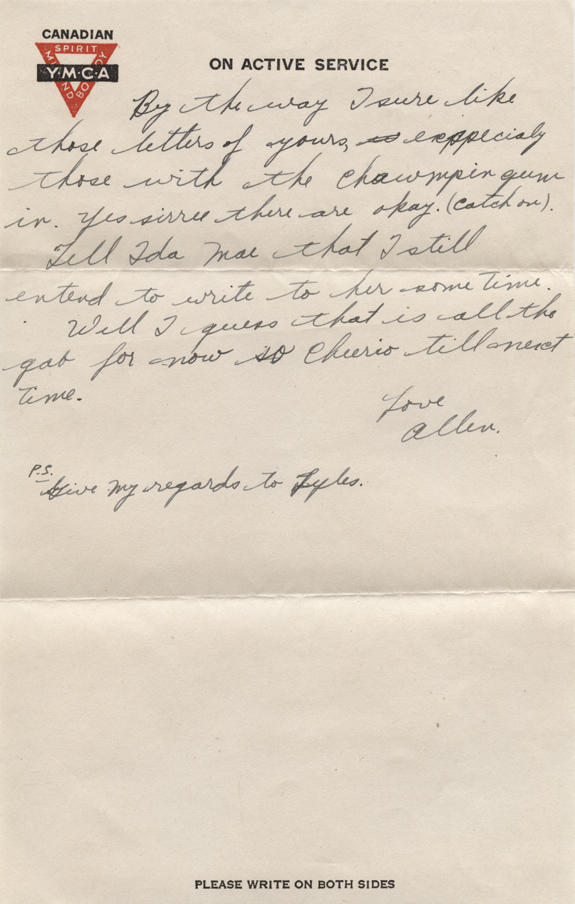 CANADIAN
SPIRIT
MIND BODY
Y·M·C·A
ON ACTIVE SERVICE
By the way I sure like
those letters of yours, exspecialy
those with the chawmpin gum
in. Yes sirree there are okay. (catch on).
Tell Ida Mae that I still
entend to write to her some time.
Well I guess that is all the
gab for now so Cheerio till next
time.
Love
Allen.
P.S.
Give my regards to Lyles.
PLEASE WRITE ON BOTH SIDES